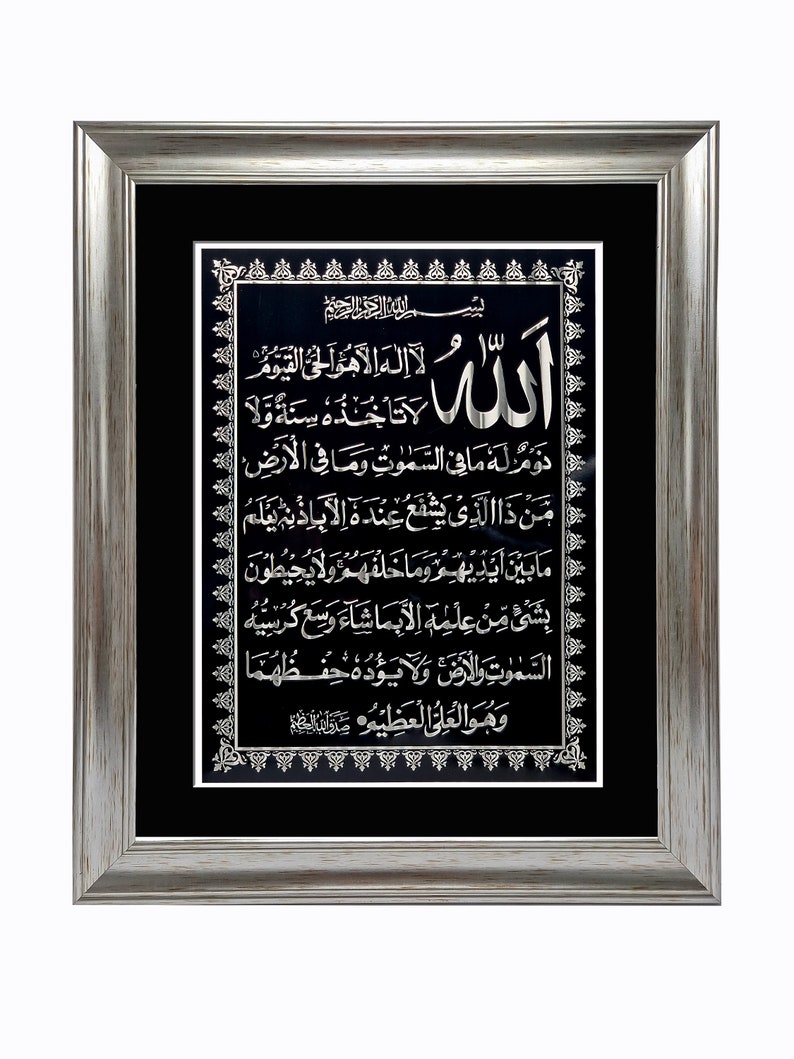 بسم الله الرحمن الرحیم
اَللّٰهُ لَآ اِلٰهَ اِلَّا هُوَ اَلْحَیُّ الْقَیُّوْمُ
لَا تَاْخُذُهٗ سِنَةٌ وَّلَا
نَوْمٌ لَهٗ مَا فِی السَّمٰوٰتِ وَمَا فِی الْاَرْضِ
مَنْ ذَا الَّذِیْ یَشْفَعُ عِنْدَهٗ اِلَّا بِاِذْنِهٖ یَعْلَمُ
مَا بَیْنَ اَیْدِیْهِمْ وَمَا خَلْفَهُمْ وَلَا یُحِیْطُوْنَ
بِشَیْءٍ مِّنْ عِلْمِهٖ اِلَّا بِمَا شَآءَ وَسِعَ كُرْسِیُّهُ
السَّمٰوٰتِ وَالْاَرْضَ وَلَا یَـُٔوْدُهٗ حِفْظُهُمَا
وَهُوَ الْعَلِیُّ الْعَظِیْمُ صَدَقَ اللهُ الْعَظِیْمُ